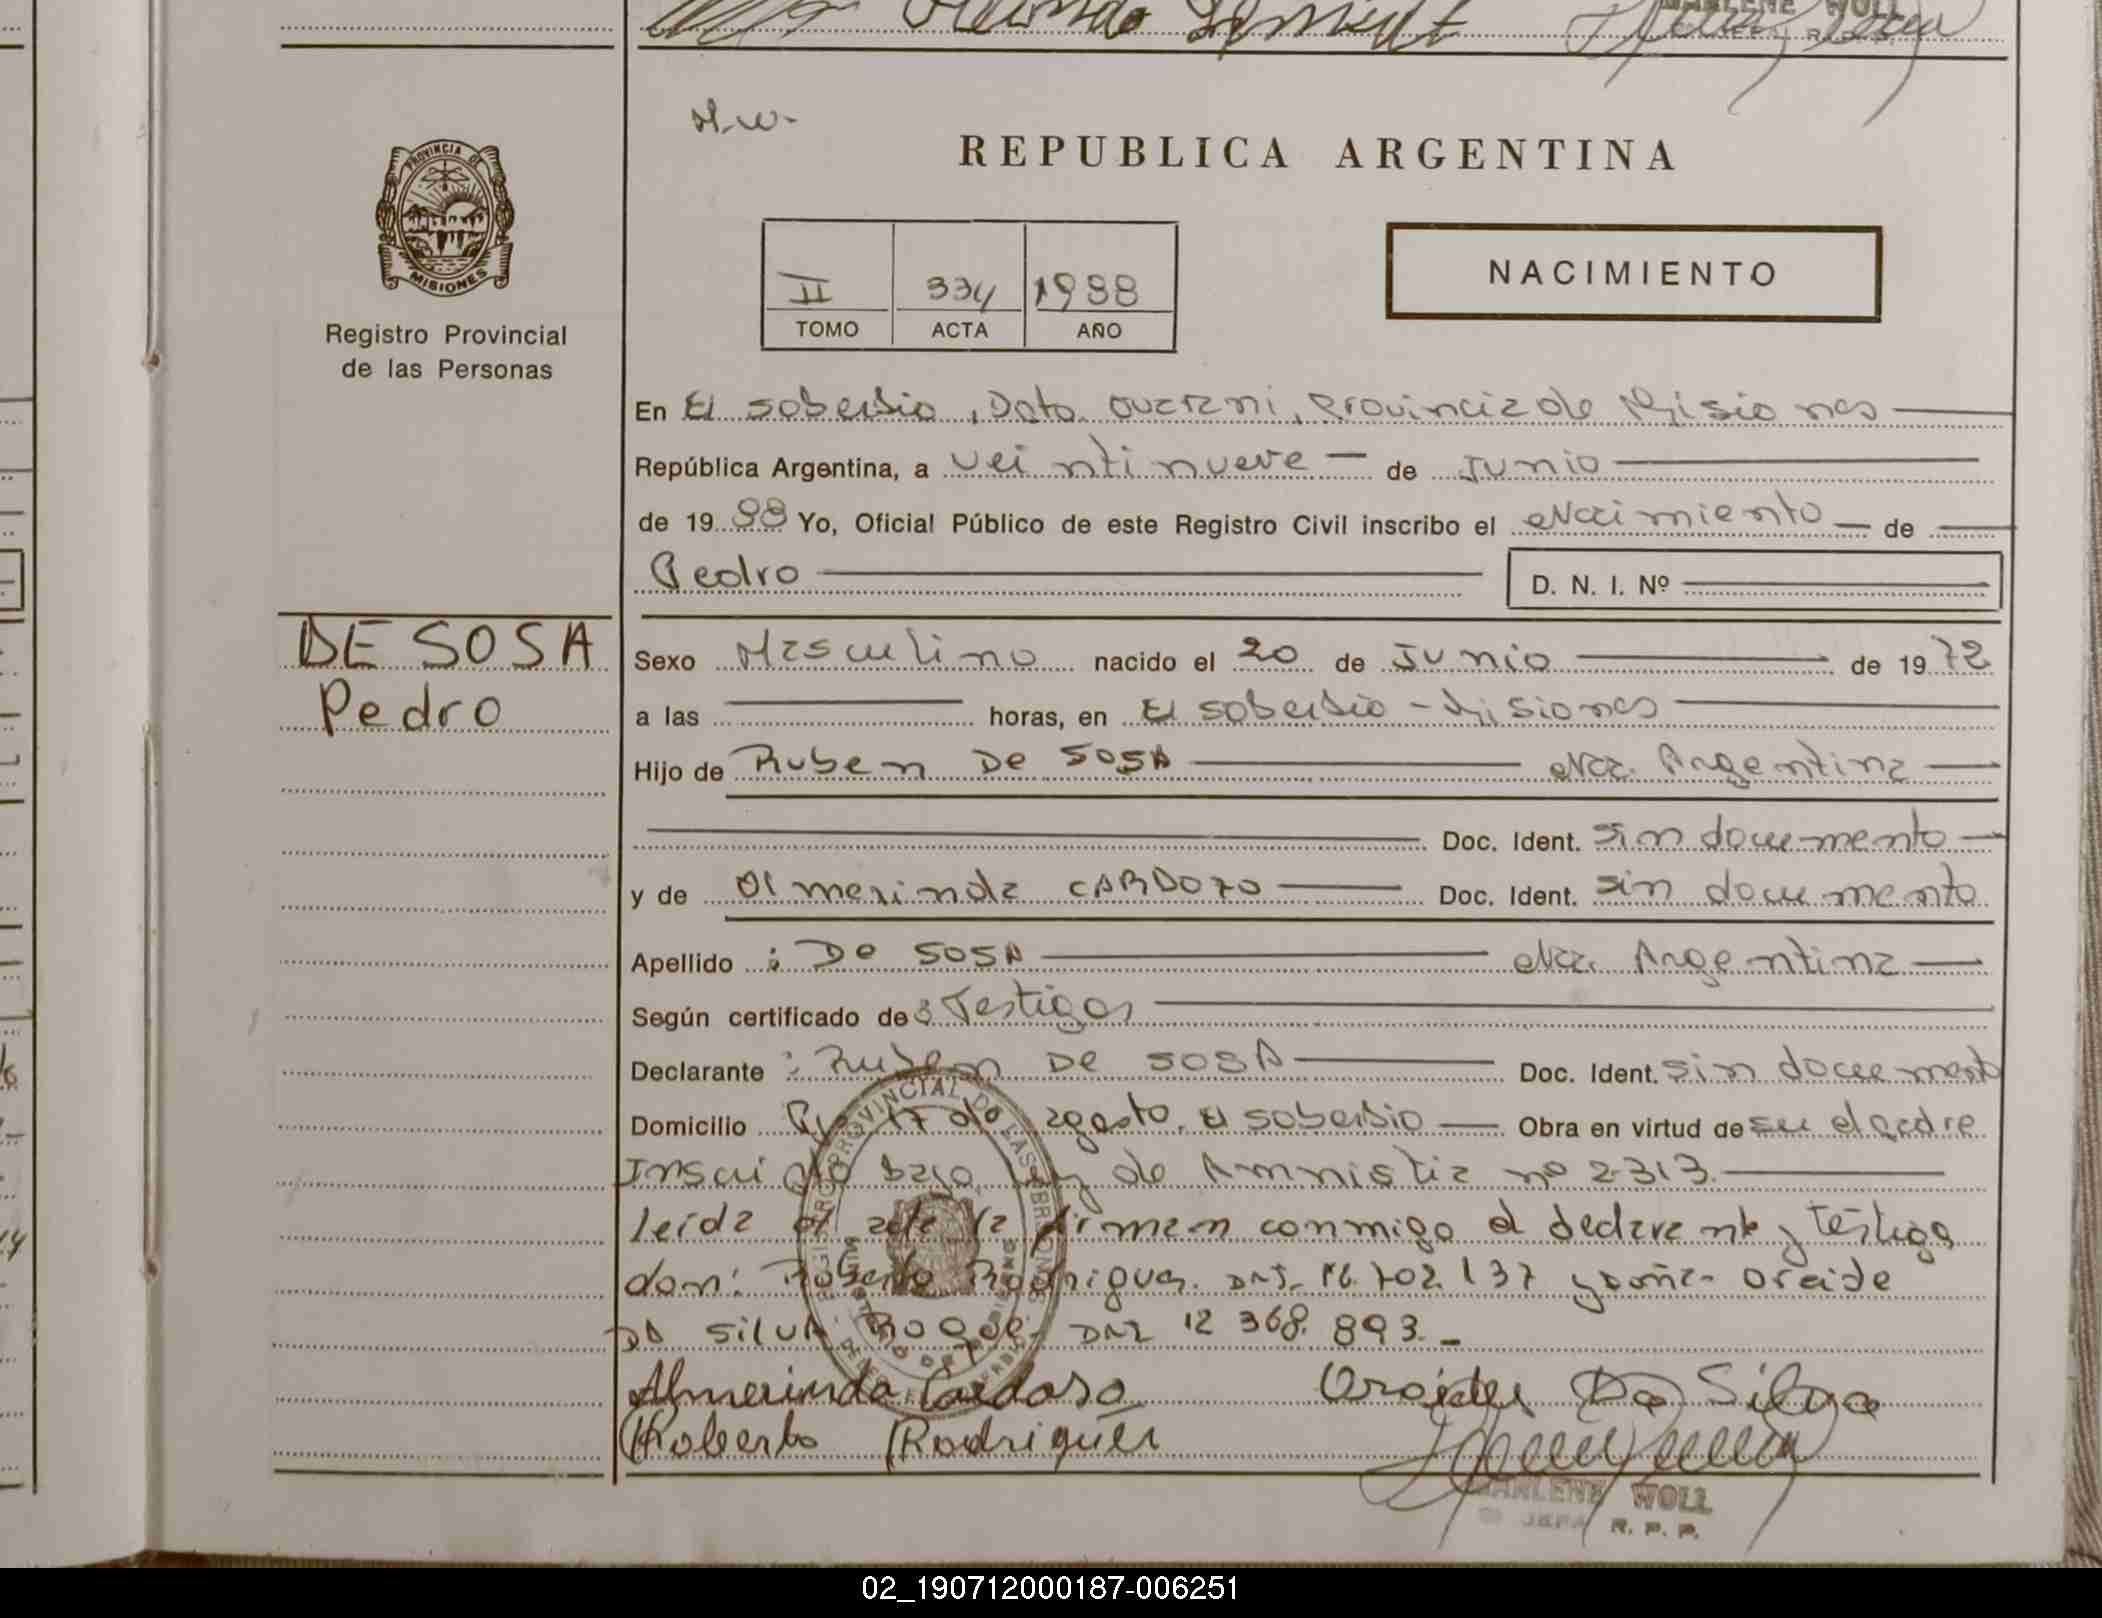 MARLENE WOLL
M.W.
REPUBLICA ARGENTINA
PROVINCIA DE
MISIONES
Registro Provincial
de las Personas
II 334 1988
TOMO ACTA AÑO
NACIMIENTO
En El soberbio, Dpto. Guarani, Provincia de Misiones
República Argentina, a veintinueve de Junio
de 1988 Yo, Oficial Público de este Registro Civil inscribo el Nacimiento de
Pedro D. N. I. Nº
DE SOSA
Pedro
Sexo Masculino nacido el 20 de Junio de 1972
a las horas, en El soberbio - Misiones
Hijo de Ruben De SOSA Nac. Argentina
Doc. Ident. sin documento
y de Olmerinda CARDOZO Doc. Ident. sin documento
Apellido : De SOSA Nac. Argentina
Según certificado de : Testigos
Declarante : Ruben De SOSA Doc. Ident. sin documento
Domicilio 17 de agosto. El soberbio Obra en virtud de su el padre
Inscripto bajo Ley de Amnistia nº 2313.
leida el acta la firman conmigo el declarante y Testigo
don: Roberto Rodriguez. DNI. 16.702.137 y doña Oraide
DA SILVA Roque. DNI 12 368. 893.
Almerinda Cardoso Oraides Da Silva
Roberto Rodriguez
MARLENE WOLL
JEFA R. P. P.
02_190712000187-006251